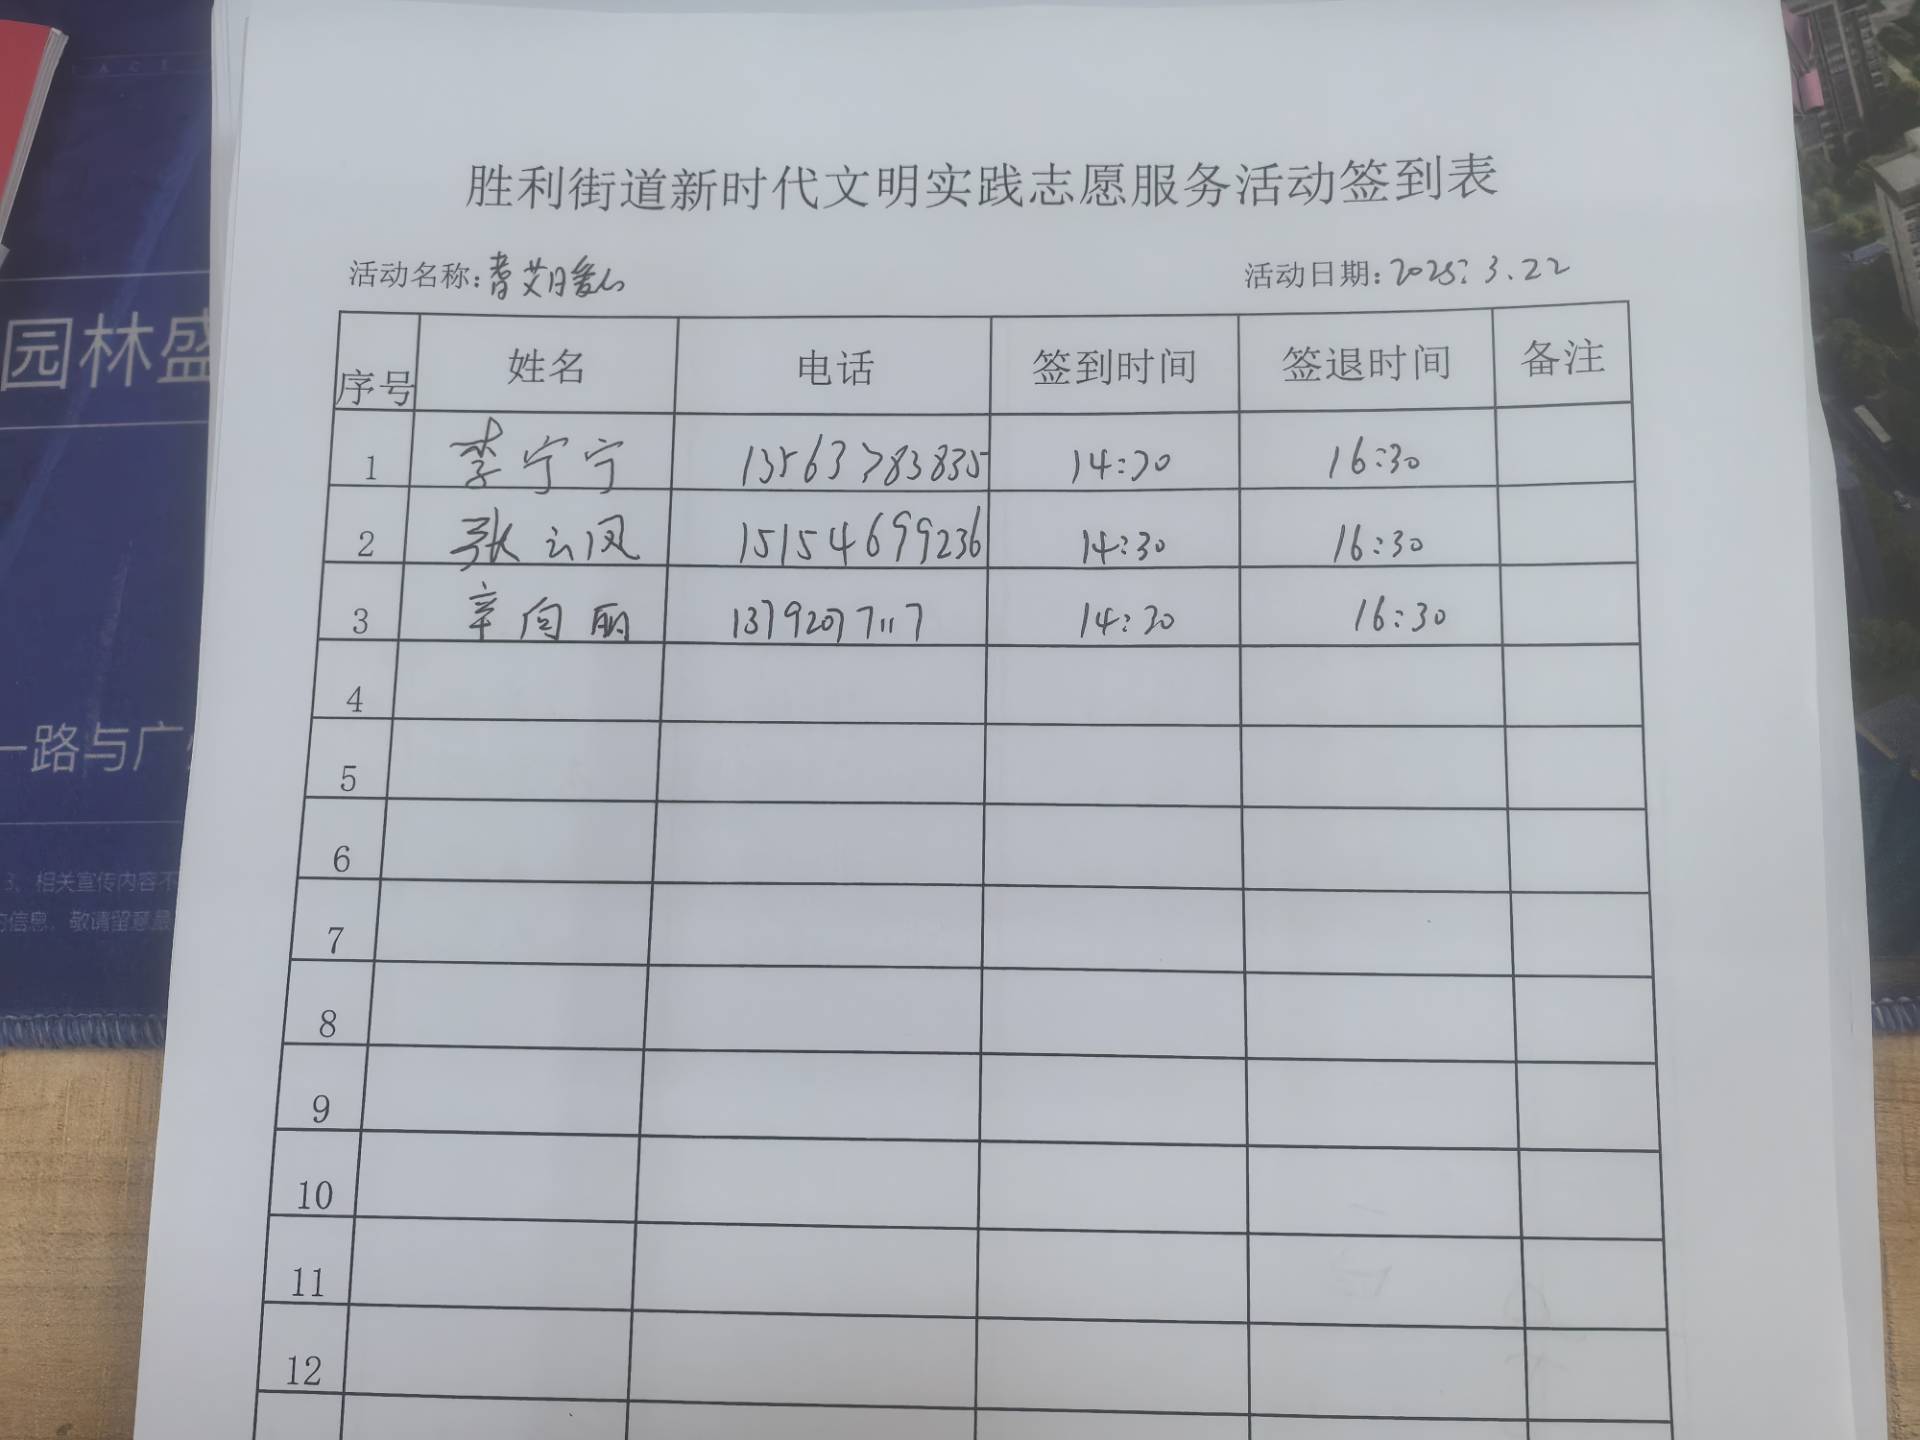 胜利街道新时代文明实践志愿服务活动签到表
活动名称: 活动日期: 2025.3.22
序号 姓名 电话 签到时间 签退时间 备注
1 李宁宁 13563783835 14:30 16:30
2 张云凤 15154699236 14:30 16:30
3 辛向丽 13792077117 14:30 16:30
4
5
6
7
8
9
10
11
12
园林盛
一路与广
3、相关宣传内容不
的信息,敬请留意最